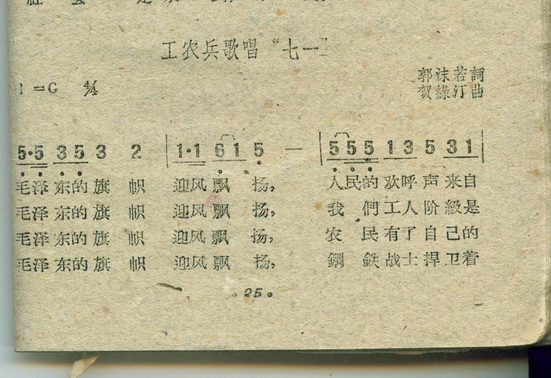 工农兵歌唱“七一”
郭沫若詞
1=G 4/4 賀綠汀曲
5·5 3 5 3 2 | 1·1 6 1 5 — | 5 5 5 1 3 5 3 1 |
毛泽东的旗帜 迎风飘扬， 人民的欢呼声来自
毛泽东的旗帜 迎风飘扬， 我們工人阶級是
毛泽东的旗帜 迎风飘扬， 农民有了自己的
毛泽东的旗帜 迎风飘扬， 鋼鉄战士捍卫着
.25.